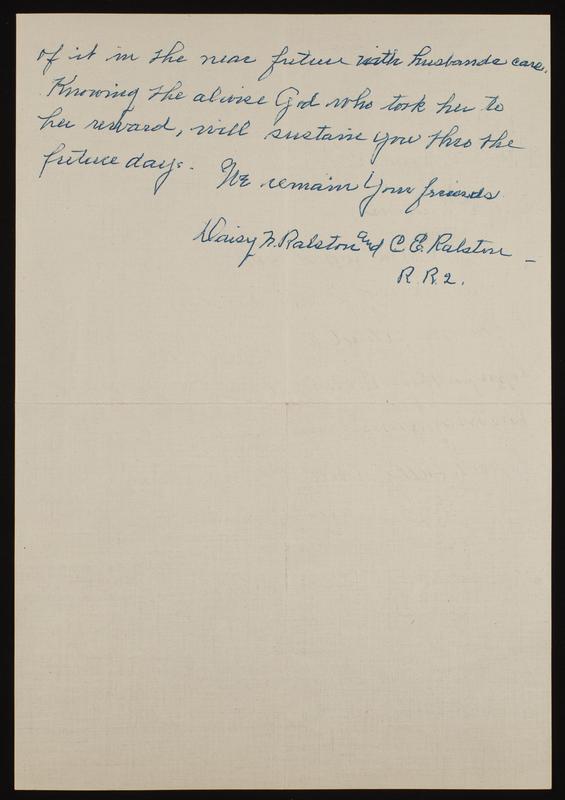 of it in the near future with husbands care.
Knowing the alwise God who took her to
her reward, will sustain you thro the
future days. We remain Your friends
Daisy N. Ralston and C E. Ralston –
R. R. 2.